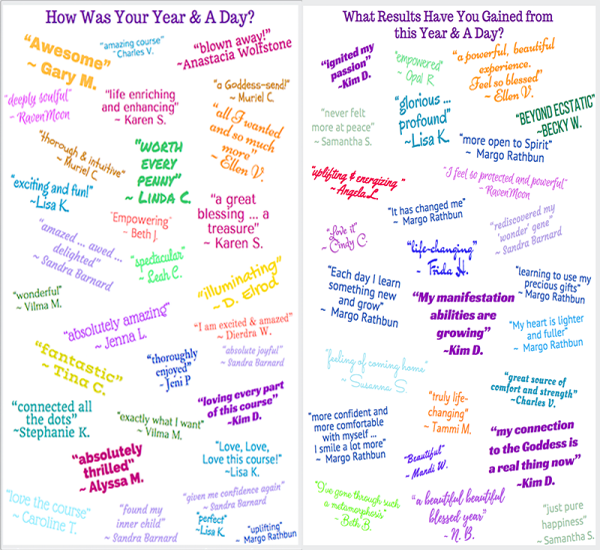 How Was Your Year & A Day?
"Awesome"
~ Gary M.
"amazing course"
~ Charles V.
"blown away!"
~Anastacia Wolfstone
"deeply soulful"
~ RavenMoon
"life enriching
and enhancing"
~ Karen S.
"a Goddess-send!"
~ Muriel C.
"all I wanted
and so much
more"
~ Ellen V.
"thorough & intuitive"
~ Muriel C.
"WORTH
EVERY
PENNY"
~ LINDA C.
"exciting and fun!"
~Lisa K.
"a great
blessing ... a
treasure"
~ Karen S.
"Empowering"
~ Beth J.
"amazed ... awed ...
delighted"
~ Sandra Barnard
"spectacular"
~ Leah C.
"illuminating"
~ D. Elrod
"wonderful"
~ Vilma M.
"absolutely amazing"
~ Jenna L.
"I am excited & amazed"
~ Dierdra W.
"fantastic"
~ Tina C.
"thoroughly
enjoyed"
~ Jeni P
"absolute joyful"
~ Sandra Barnard
"loving every part
of this course"
~Kim D.
"connected all
the dots"
~Stephanie K.
"exactly what I want"
~ Vilma M.
"absolutely
thrilled"
~ Alyssa M.
"Love, Love,
Love this course!"
~Lisa K.
"given me confidence again"
~ Sandra Barnard
"love the course"
~ Caroline T.
"found my
inner child"
~ Sandra Barnard
"perfect"
~Lisa K.
"uplifting"
~ Margo Rathbun
What Results Have You Gained from
this Year & A Day?
"ignited my
passion"
~Kim D.
"empowered"
~ Opal R.
"a powerful, beautiful
experience.
Feel so blessed"
~ Ellen V.
"glorious ...
profound"
~Lisa K.
"BEYOND ECSTATIC"
~BECKY W.
"never felt
more at peace"
~ Samantha S.
"more open to Spirit"
~ Margo Rathbun
"uplifting & energizing"
~ Angela L.
"I feel so protected and powerful"
~RavenMoon
"It has changed me"
~ Margo Rathbun
"rediscovered my
'wonder' gene"
~ Sandra Barnard
"Love it"
~Cindy C.
"life-changing"
~ Frida H.
"Each day I learn
something new
and grow"
~ Margo Rathbun
"learning to use my
precious gifts"
~ Margo Rathbun
"My manifestation
abilities are
growing"
~Kim D.
"My heart is lighter
and fuller"
~ Margo Rathbun
"feeling of coming home"
~ Susanna S.
"great source of
comfort and strength"
~Charles V.
"truly life-
changing"
~ Tammi M.
"more confident and
more comfortable
with myself ...
I smile a lot more"
~ Margo Rathbun
"my connection
to the Goddess is
a real thing now"
~Kim D.
"Beautiful"
~ Mandi W.
"I've gone through such
a metamorphosis"
~ Beth B.
"a beautiful beautiful
blessed year"
~ N. B.
"just pure
happiness"
~ Samantha S.